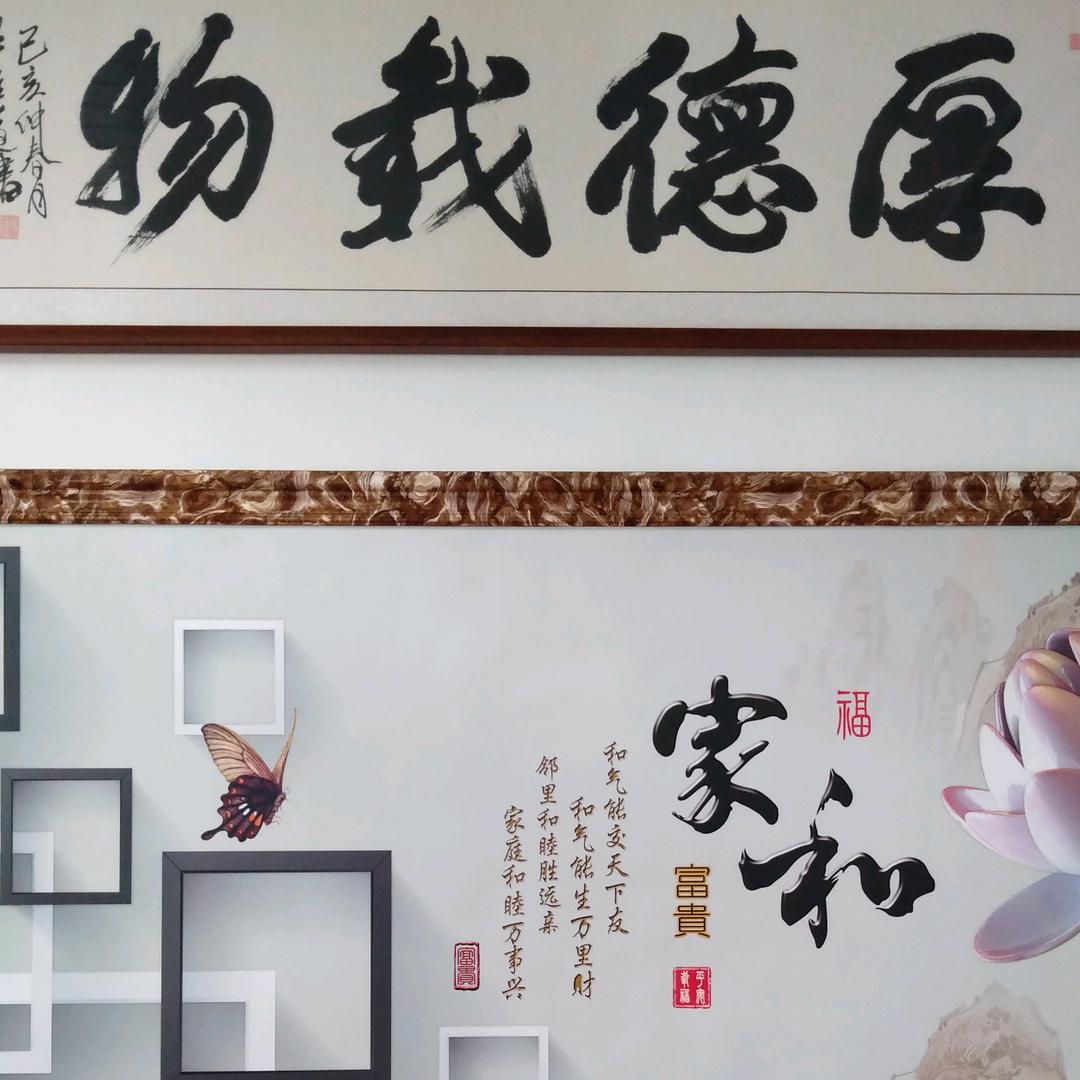 厚德载物
己亥仲春月
家和
福
富貴
平安
幸福
和气能交天下友
和气能生万里财
邻里和睦胜远亲
家庭和睦万事兴
富貴